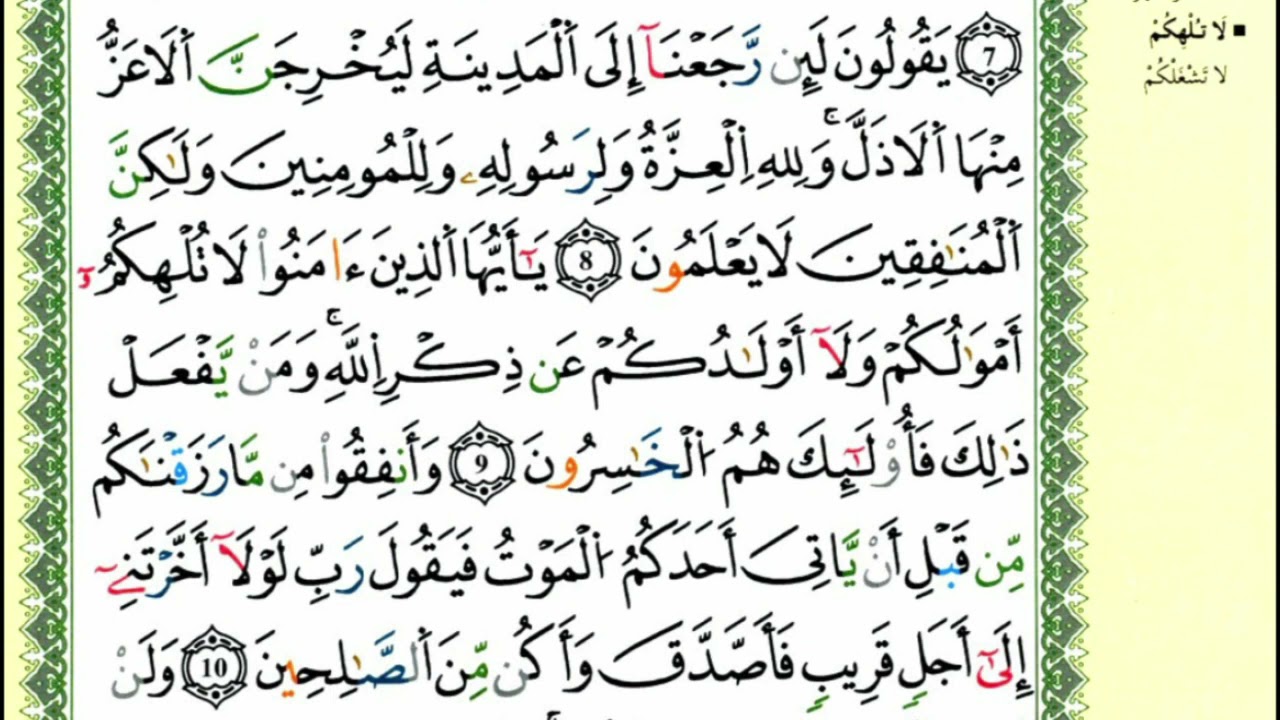 7 يَقُولُونَ لَئِن رَّجَعْنَآ إِلَى ٱلْمَدِينَةِ لَيُخْرِجَنَّ ٱلَاعَزُّ
مِنْهَا ٱلَاذَلَّ وَلِلهِ اِ۬لْعِزَّةُ وَلِرَسُولِهِۦ وَلِلْمُومِنِينَ وَلَٰكِنَّ
ٱلْمُنَٰفِقِينَ لَا يَعْلَمُونَ 8 يَٰٓأَيُّهَا ٱلذِينَ ءَامَنُواْ لَا تُلْهِكُمُۥٓ
أَمْوَٰلُكُمْ وَلَآ أَوْلَٰدُكُمْ عَن ذِكْرِ اِ۬للَّهِ وَمَنْ يَّفْعَلْ
ذَٰلِكَ فَأُوْلَٰٓئِكَ هُمُ اُ۬لْخَٰسِرُونَ 9 وَأَنفِقُواْ مِن مَّا رَزَقْنَٰكُم
مِّن قَبْلِ أَنْ يَّاتِىَ أَحَدَكُمُ اُ۬لْمَوْتُ فَيَقُولَ رَبِّ لَوْلَآ أَخَّرْتَنِےٓ
إِلَىٰٓ أَجَلٍ قَرِيبٍ فَأَصَّدَّقَ وَأَكُن مِّنَ ٱلصَّٰلِحِينَ 10 وَلَنْ
■ لَا تُلْهِكُمْ
لا تَشْغَلْكُمْ